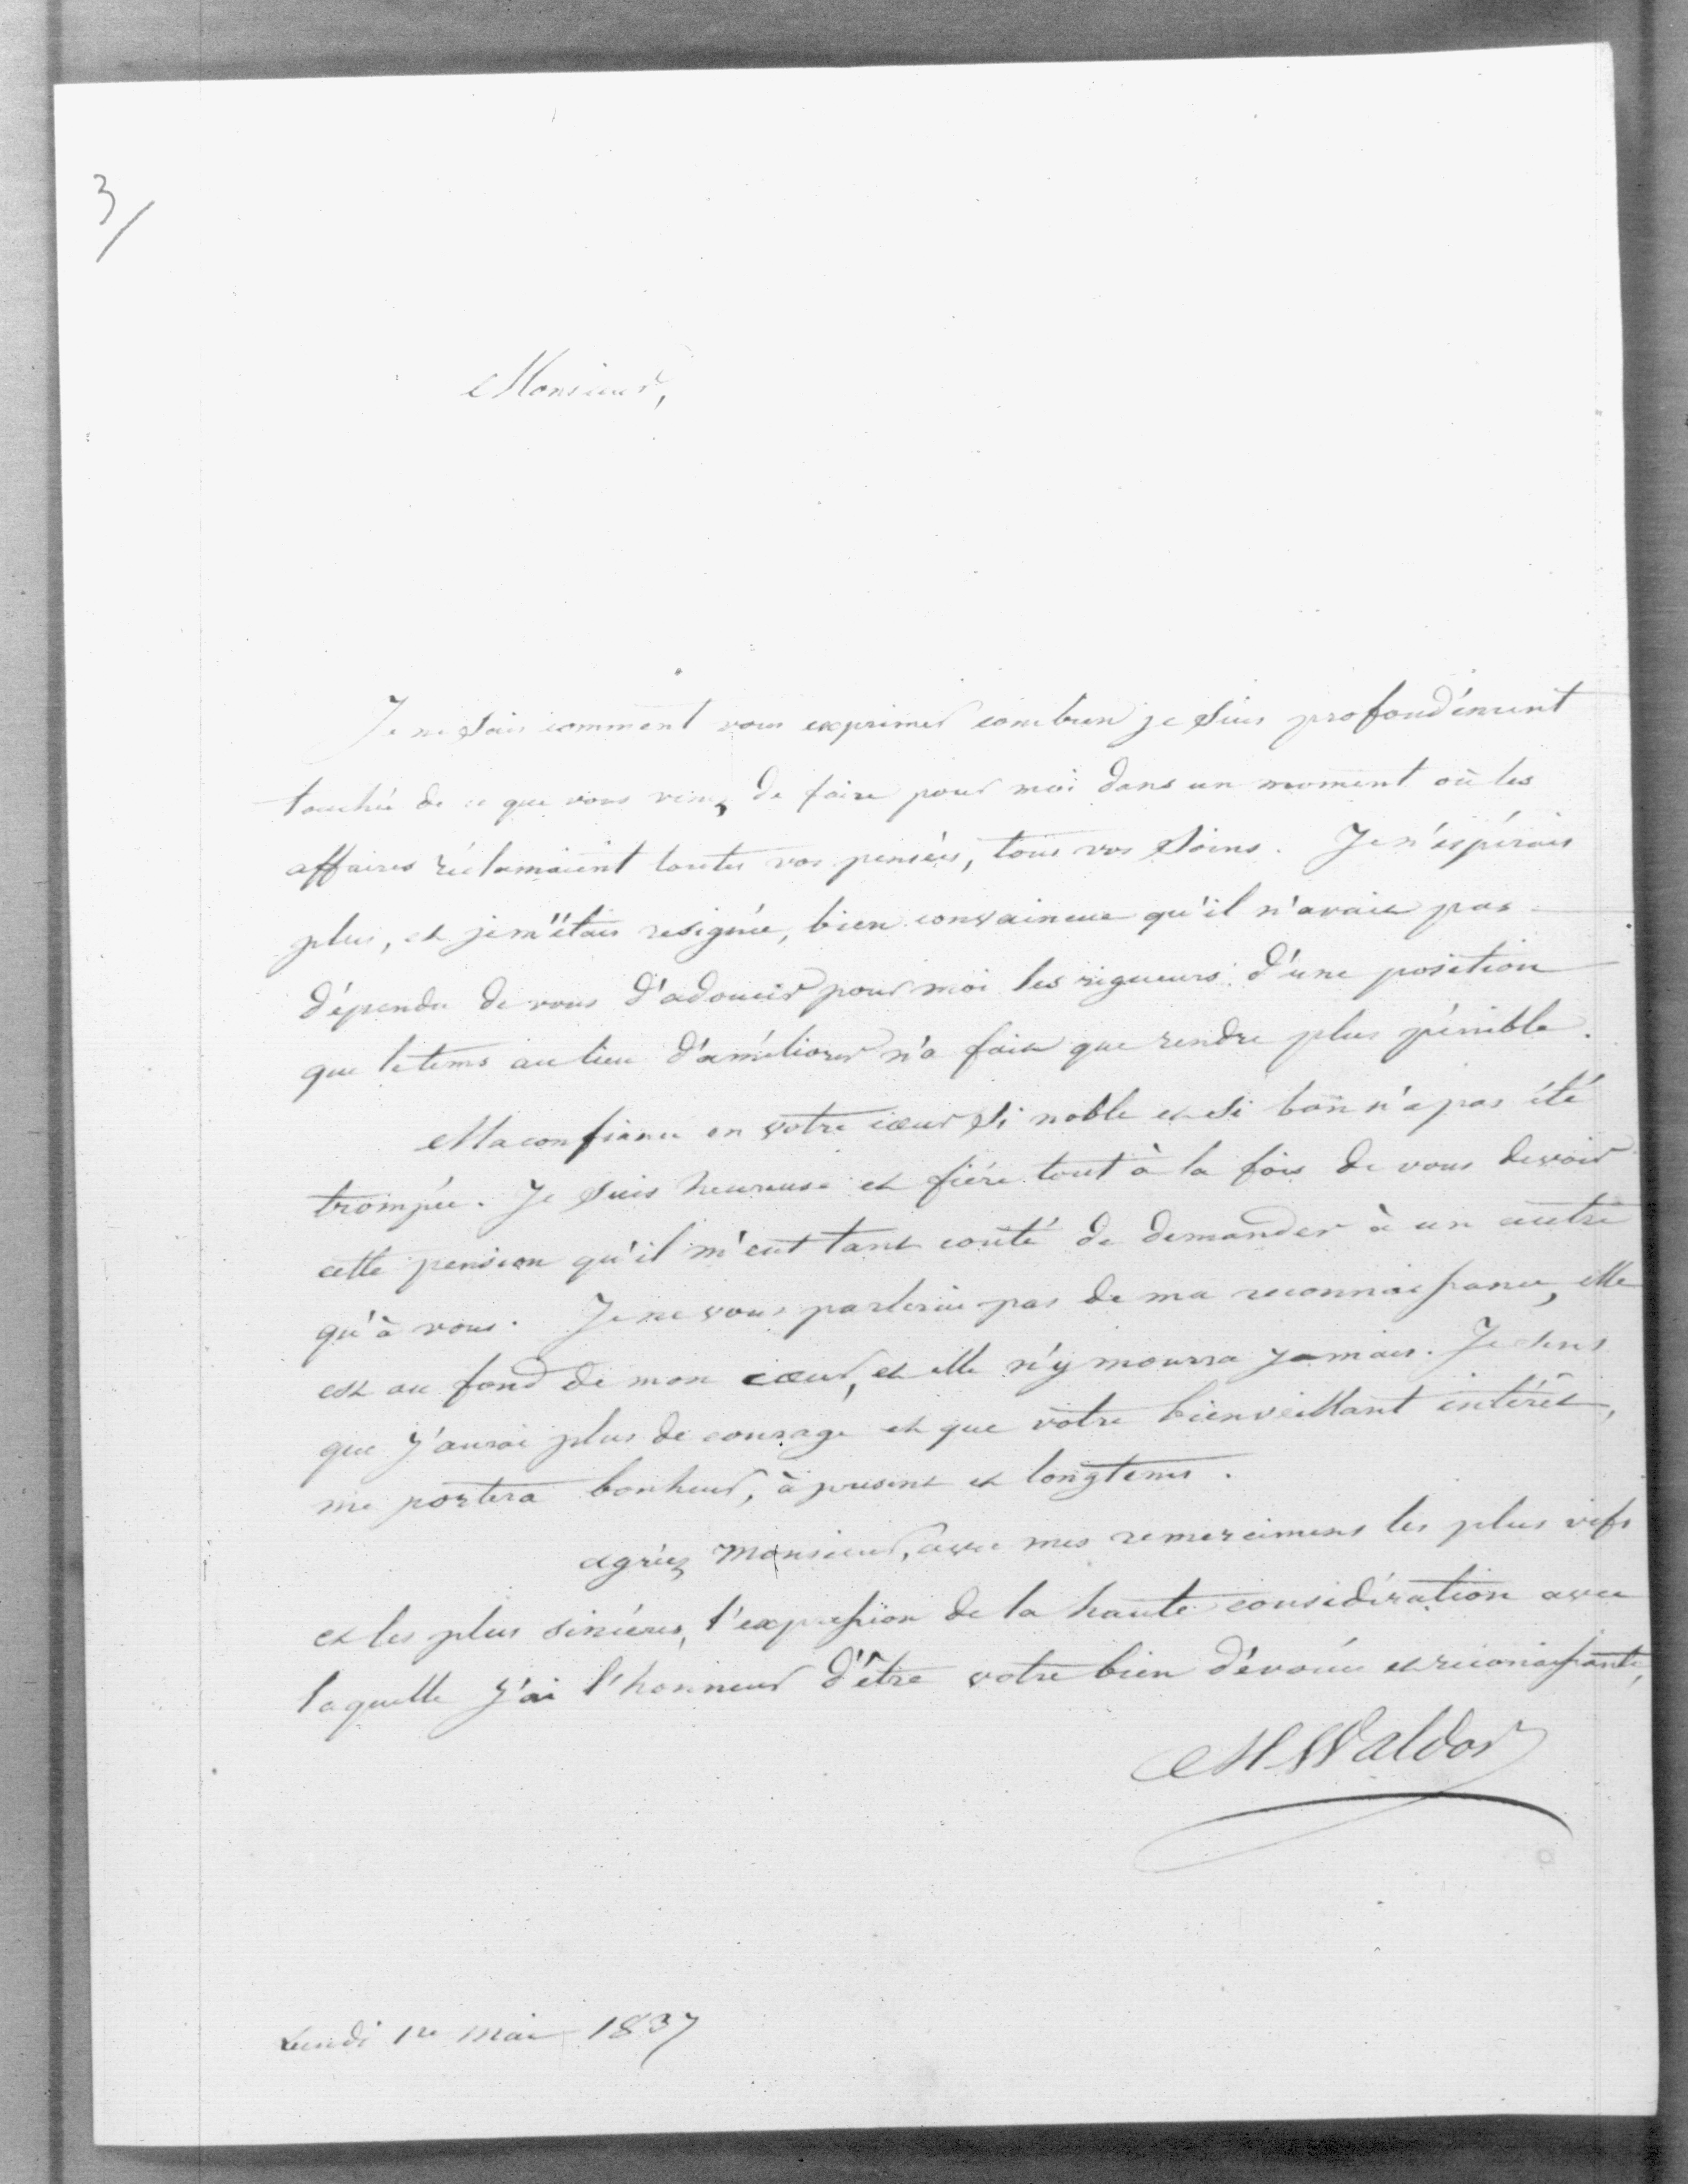 3/
Monsieur,
Je ne sais comment vous exprimer combien je suis profondément
touchée de ce que vous venez de faire pour moi dans un moment où les
affaires réclamaient toutes vos pensées, tous vos soins. Je n'espérais
plus, et je m'étais resignée, bien convaincue qu'il n'avait pas
dépendu de vous d'adoucir pour moi les rigueurs d'une position
que le tems au lieu d'améliorer n'a fait que rendre plus pénible.
Ma confiance en votre cœur si noble et si bon n'a pas été
trompée. Je suis heureuse et fière tout à la fois de vous devoir
cette pension qu'il m'eut tant couté de demander à un autre
qu'à vous. Je ne vous parlerai pas de ma reconnaissance, elle
est au fond de mon cœur, et elle n'y mourra jamais. Je sens
que j'aurai plus de courage et que votre bienveillant intérêt,
me portera bonheur, à present et longtems.
agréez Monsieur, avec mes remercimens les plus vifs
et les plus sincères, l'expression de la haute considération avec
laquelle j'ai l'honneur d'être votre bien dévouée et reconaissante,
M Waldor
Lundi 1er mai 1837